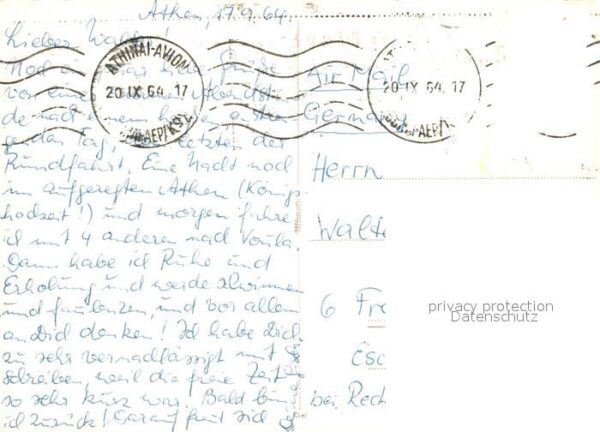 Athen, 17.9.64.
Lieber Walter!
Noch
von einer
de nach einem
genden Tag, letzten der
Rundfahrt. Eine Nacht noch
im aufgeregten Athen (Königs-
hochzeit!) und morgen fahre
ich mit 4 anderen nach Voula.
Dann habe ich Ruhe und
Erholung und werde schwimmen
und faulenzen, und vor allem
an Dich denken! Ich habe Dich
zu sehr vernachlässigt mit
schreiben, weil die freie Zeit
so sehr kurz war. Bald bin
ich zurück! Darauf freut sich
ATHINAI-AVION
20 IX 64. 17
20 IX 64. 17
Air Mail
Germany
Herrn
Walte
6 Fr
Esc
bei Rech
privacy protection
Datenschutz